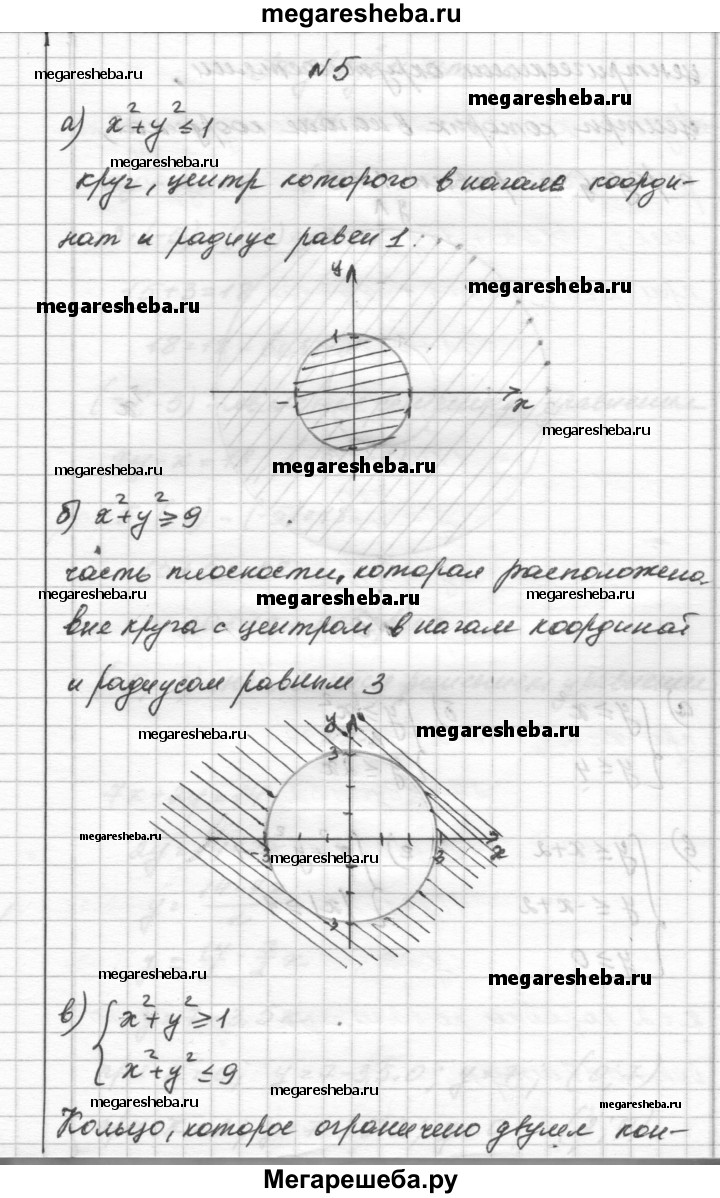 megaresheba.ru
megaresheba.ru
№5
megaresheba.ru
а) x²+y²≤1
megaresheba.ru
круг, центр которого в начале коорди-
нат и радиус равен 1.
y
megaresheba.ru
megaresheba.ru
1
-1
1
x
megaresheba.ru
megaresheba.ru
megaresheba.ru
б) x²+y²≥9
часть плоскости, которая расположена
megaresheba.ru
megaresheba.ru
megaresheba.ru
вне круга с центром в начале координат
и радиусом равным 3
y
megaresheba.ru
megaresheba.ru
3
megaresheba.ru
-3
megaresheba.ru
3
x
-3
megaresheba.ru
megaresheba.ru
в) { x²+y²≥1
x²+y²≤9
megaresheba.ru
megaresheba.ru
megaresheba.ru
Кольцо, которое ограничено двумя кон-
Мегарешеба.ру